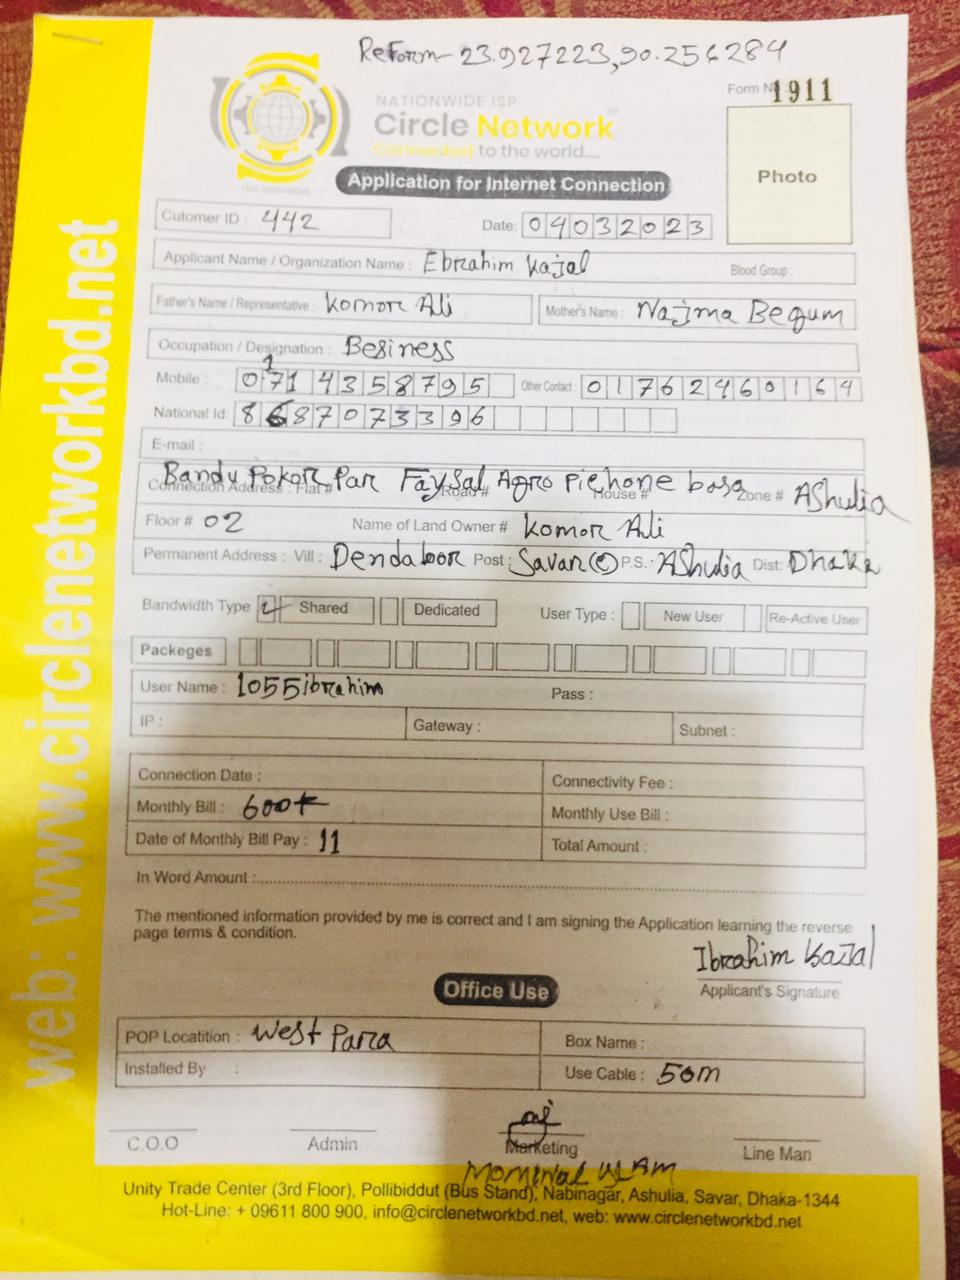 ReForm- 23.927223,90.256284
NATIONWIDE ISP
Circle Network
Connected to the world.....
Form No 1911
Photo
Application for Internet Connection
Cutomer ID : 442
Date: 04032023
Applicant Name / Organization Name : Ebrahim Kajal Blood Group :
Father's Name / Representative : Komor Ali Mother's Name : Najma Begum
Occupation / Designation : Besiness
Mobile : 01714358795 Other Contact : 01762460164
National Id: 8687073396
E-mail :
Bandu Pokor Par Faysal Agro Pichone basa
Connection Address : Flat # Road # House # Zone # AShulia
Floor # 02 Name of Land Owner # Komor Ali
Permanent Address : Vill : Dendabor Post : Savar(c) P.S. · AShulia Dist: Dhaka
Bandwidth Type Shared Dedicated User Type : New User Re-Active User
Packeges
User Name : 1055ibrahim Pass :
IP : Gateway : Subnet :
Connection Date : Connectivity Fee :
Monthly Bill : 600 Monthly Use Bill :
Date of Monthly Bill Pay : 11 Total Amount :
In Word Amount :
The mentioned information provided by me is correct and I am signing the Application learning the reverse
page terms & condition.
Ibrahim Kajal
Applicant's Signature
Office Use
POP Locatition : West Para Box Name :
Installed By : Use Cable : 50m
C.O.O Admin Marketing Line Man
Mominal ISLAM
Unity Trade Center (3rd Floor), Pollibiddut (Bus Stand), Nabinagar, Ashulia, Savar, Dhaka-1344
Hot-Line: + 09611 800 900, info@circlenetworkbd.net, web: www.circlenetworkbd.net
web: www.circlenetworkbd.net